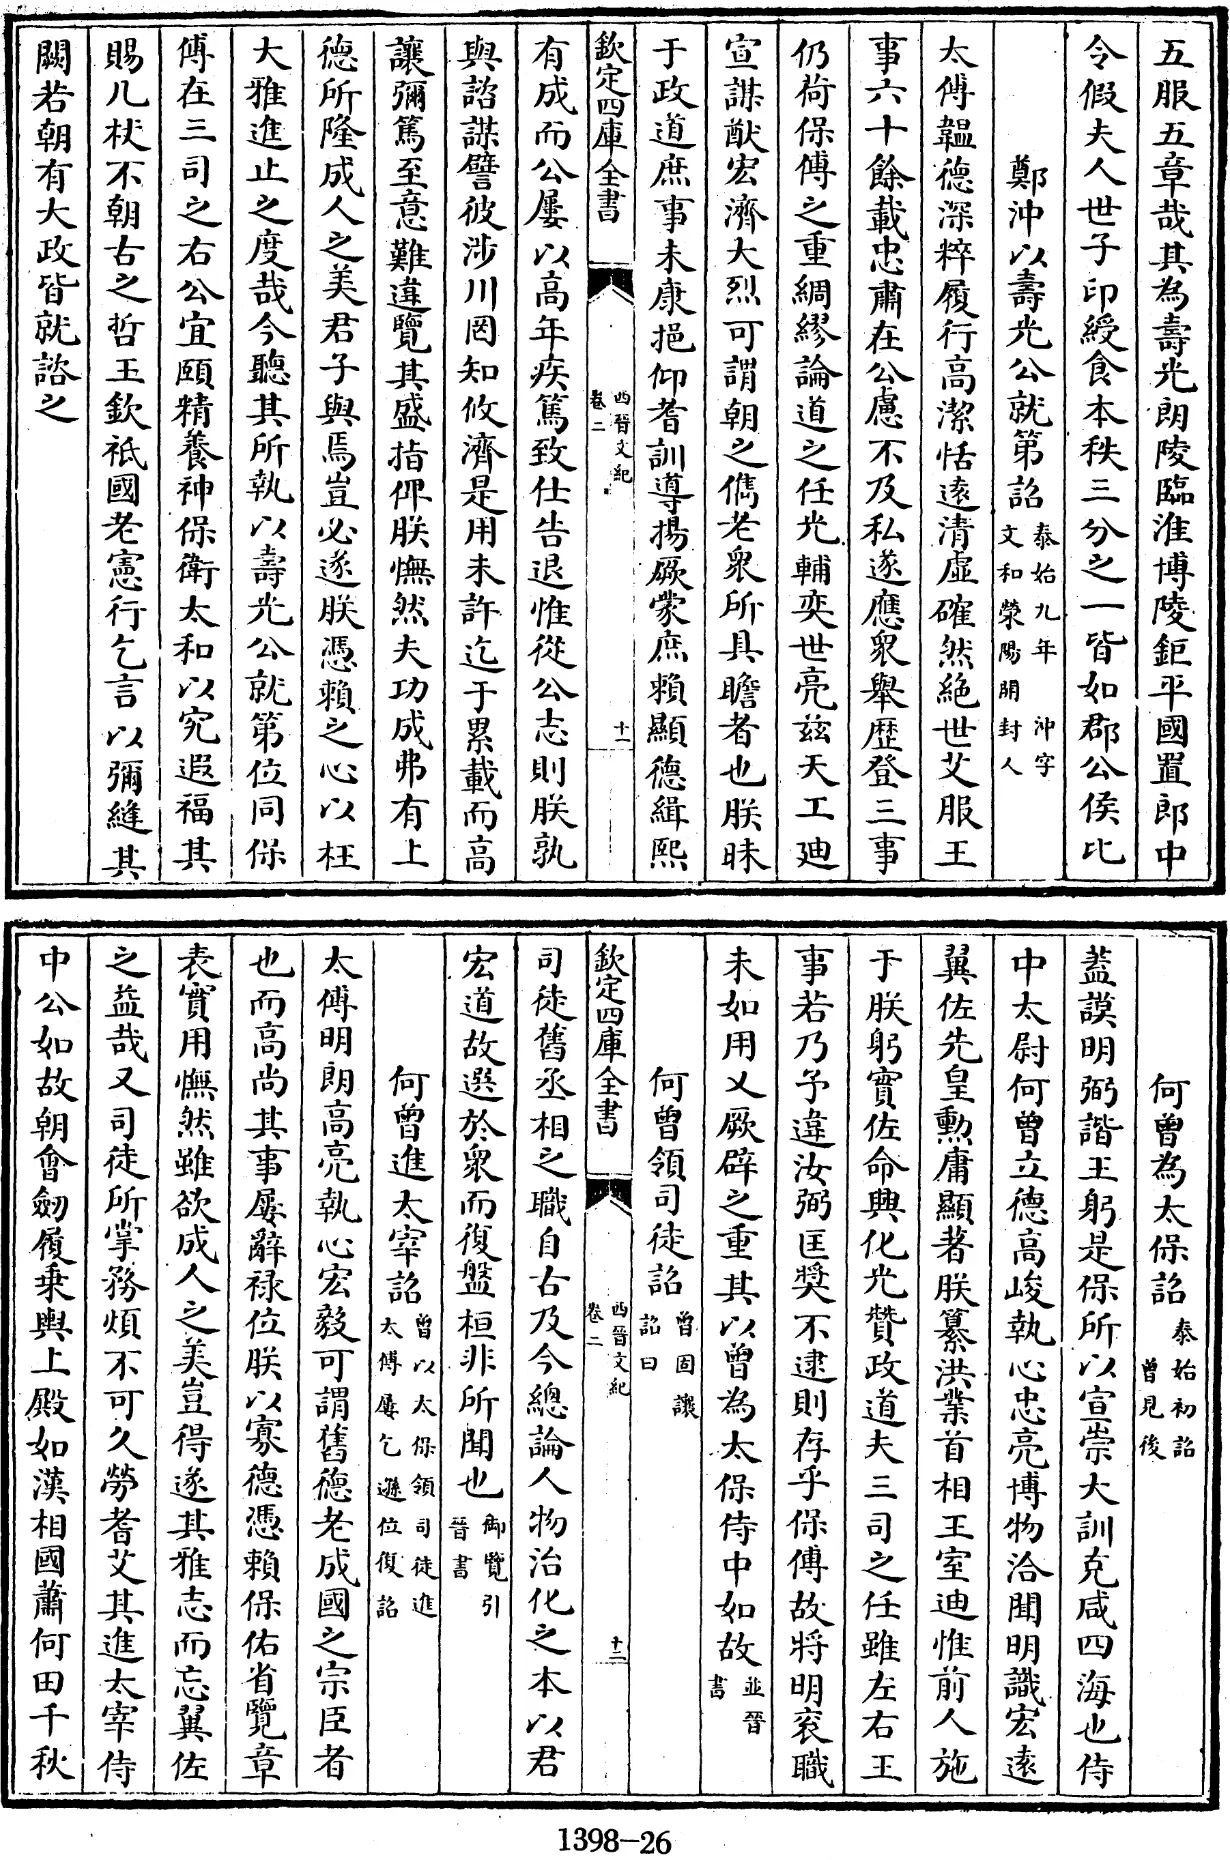 五服五章哉其為壽光朗陵臨淮博陵鉅平國置郎中
令假夫人世子印綬食本秩三分之一皆如郡公侯比
鄭沖以壽光公就第詔
泰始九年 沖字
文和滎陽開封人
太傅韞德深粹履行高潔恬遠清虛確然絶世艾服王
事六十餘載忠肅在公慮不及私遂應衆舉歷登三事
仍荷保傅之重綢繆論道之任光輔奕世亮茲天工廸
宣謀猷宏濟大烈可謂朝之儁老衆所具瞻者也朕昧
于政道庶事未康挹仰耆訓導揚厥蒙庶賴顯德緝熙
欽定四庫全書
西晉文紀
卷二
十一
有成而公屢以高年疾篤致仕告退惟從公志則朕孰
與諮謀譬彼涉川罔知攸濟是用未許迄于累載而高
讓彌篤至意難違覽其盛指俾朕憮然夫功成弗有上
德所隆成人之美君子與焉豈必遂朕憑賴之心以枉
大雅進止之度哉今聽其所執以壽光公就第位同保
傅在三司之右公宜頤精養神保衛太和以究遐福其
賜几杖不朝古之哲王欽祇國老憲行乞言以彌縫其
闕若朝有大政皆就諮之
何曾為太保詔
泰始初詔
曾見後
蓋謨明弼諧王躬是保所以宣崇大訓克咸四海也侍
中太尉何曾立德高峻執心忠亮博物洽聞明識宏遠
翼佐先皇勳庸顯著朕纂洪業首相王室迪惟前人施
于朕躬實佐命興化光贊政道夫三司之任雖左右王
事若乃予違汝弼匡奬不逮則存乎保傅故將明衮職
未如用乂厥辟之重其以曾為太保侍中如故
並晉
書
何曾領司徒詔
曾固讓
詔曰
欽定四庫全書
西晉文紀
卷二
十二
司徒舊丞相之職自古及今總論人物治化之本以君
宏道故選於衆而復盤桓非所聞也
御覽引
晉書
何曾進太宰詔
曾以太保領司徒進
太傅屢乞遜位復詔
太傅明朗高亮執心宏毅可謂舊德老成國之宗臣者
也而高尚其事屢辭禄位朕以寡德憑賴保佑省覽章
表實用憮然雖欲成人之美豈得遂其雅志而忘翼佐
之益哉又司徒所掌務煩不可久勞耆艾其進太宰侍
中公如故朝會劒履乗輿上殿如漢相國蕭何田千秋
1398-26